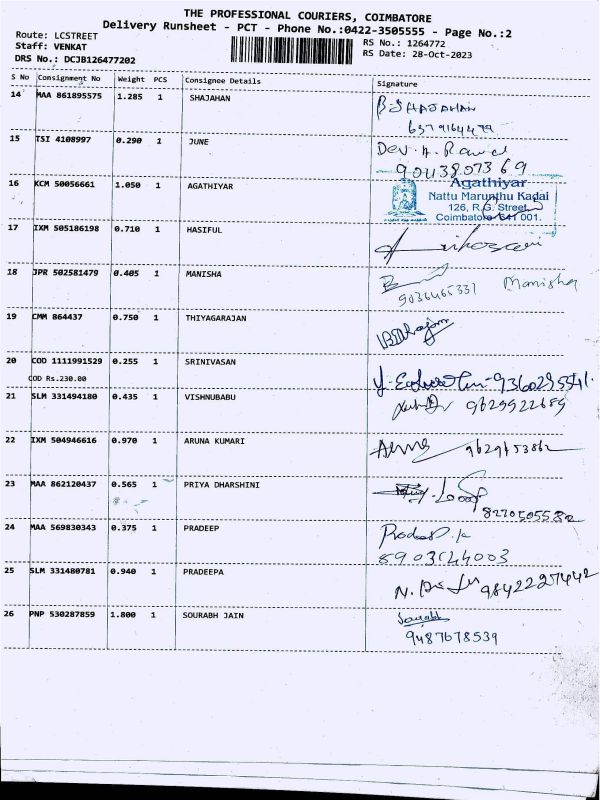 THE PROFESSIONAL COURIERS, COIMBATORE
Delivery Runsheet - PCT - Phone No.:0422-3505555 - Page No.:2
Route: LCSTREET
Staff: VENKAT
DRS No.: DCJB126477202
RS No.: 1264772
RS Date: 28-Oct-2023
S No Consignment No Weight PCS Consignee Details Signature
14 MAA 861895575 1.285 1 SHAJAHAN B SHAJAHAN
15 TSI 4108997 0.290 1 JUNE
9043807369
16 KCM 50056661 1.050 1 AGATHIYAR
Agathiyar
Nattu Marunthu Kadai
126, R.G. Street,
Coimbatore-641 001.
17 IXM 505186198 0.710 1 HASIFUL
18 JPR 502581479 0.405 1 MANISHA Manisha
9036465331
19 CMM 864437 0.750 1 THIYAGARAJAN
20 COD 1111991529 0.255 1 SRINIVASAN
COD Rs.230.00
21 SLM 331494180 0.435 1 VISHNUBABU 9629922689
22 IXM 504946616 0.970 1 ARUNA KUMARI
23 MAA 862120437 0.565 1 PRIYA DHARSHINI
24 MAA 569830343 0.375 1 PRADEEP
8903144003
25 SLM 331480781 0.940 1 PRADEEPA 9842227442
26 PNP 530287859 1.800 1 SOURABH JAIN Sourabh
9487678539